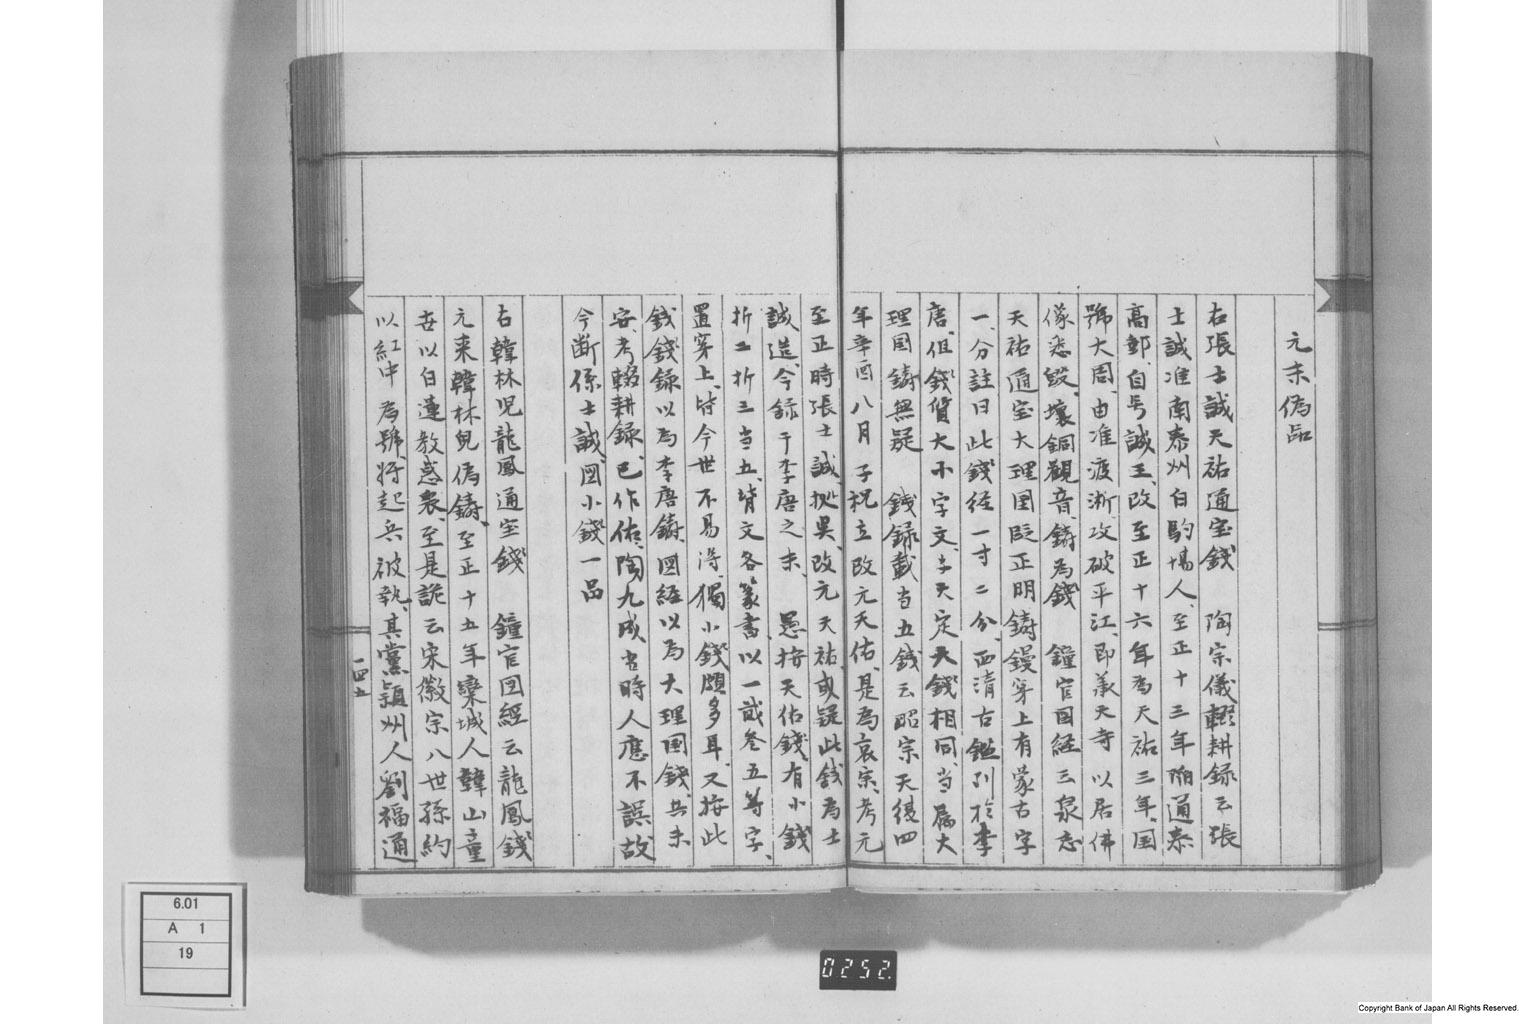 元末偽品
右張士誠天祐通宝錢　陶宗儀輟耕録云張
士誠淮南泰州白駒場人至正十三年陥通泰
高郵自号誠王改至正十六年為天祐三年国
號大周由淮渡浙攻破平江即承天寺以居佛
像悉毀壊銅觀音鋳為錢　鐘官図経云泉志
天祐通宝大理国段正明鋳鏝穿上有蒙古字
一分註曰此錢径一寸二分西清古鑑列於李
唐但錢貨大小字文与天定大錢相同当属大
理国鋳無疑　錢録載当五錢云昭宗天復四
年辛酉八月子柷立改元天佑是為哀宗考元
至正時張士誠拠呉改元天祐或疑此錢為士
誠造今録于李唐之末　愚按天佑錢有小錢
折二折三当五背文各篆書以一貮叁五等字
置穿上皆今世不易得獨小錢頗多耳又按此
錢錢録以為李唐鋳図経以為大理国錢共未
安考輟耕録已作佑陶九成当時人應不誤故
今断係士誠図小錢一品
右韓林児龍鳳通宝錢　鐘官図経云龍鳳錢
元来韓林兒偽鋳至正十五年欒城人韓山童
世以白蓮教惑衆至是詭云宋徽宗八世孫約
以紅巾為號将起兵被執其黨頴州人劉福通
一四五
6.01
A 1
19
0252.
Copyright Bank of Japan All Rights Reserved.